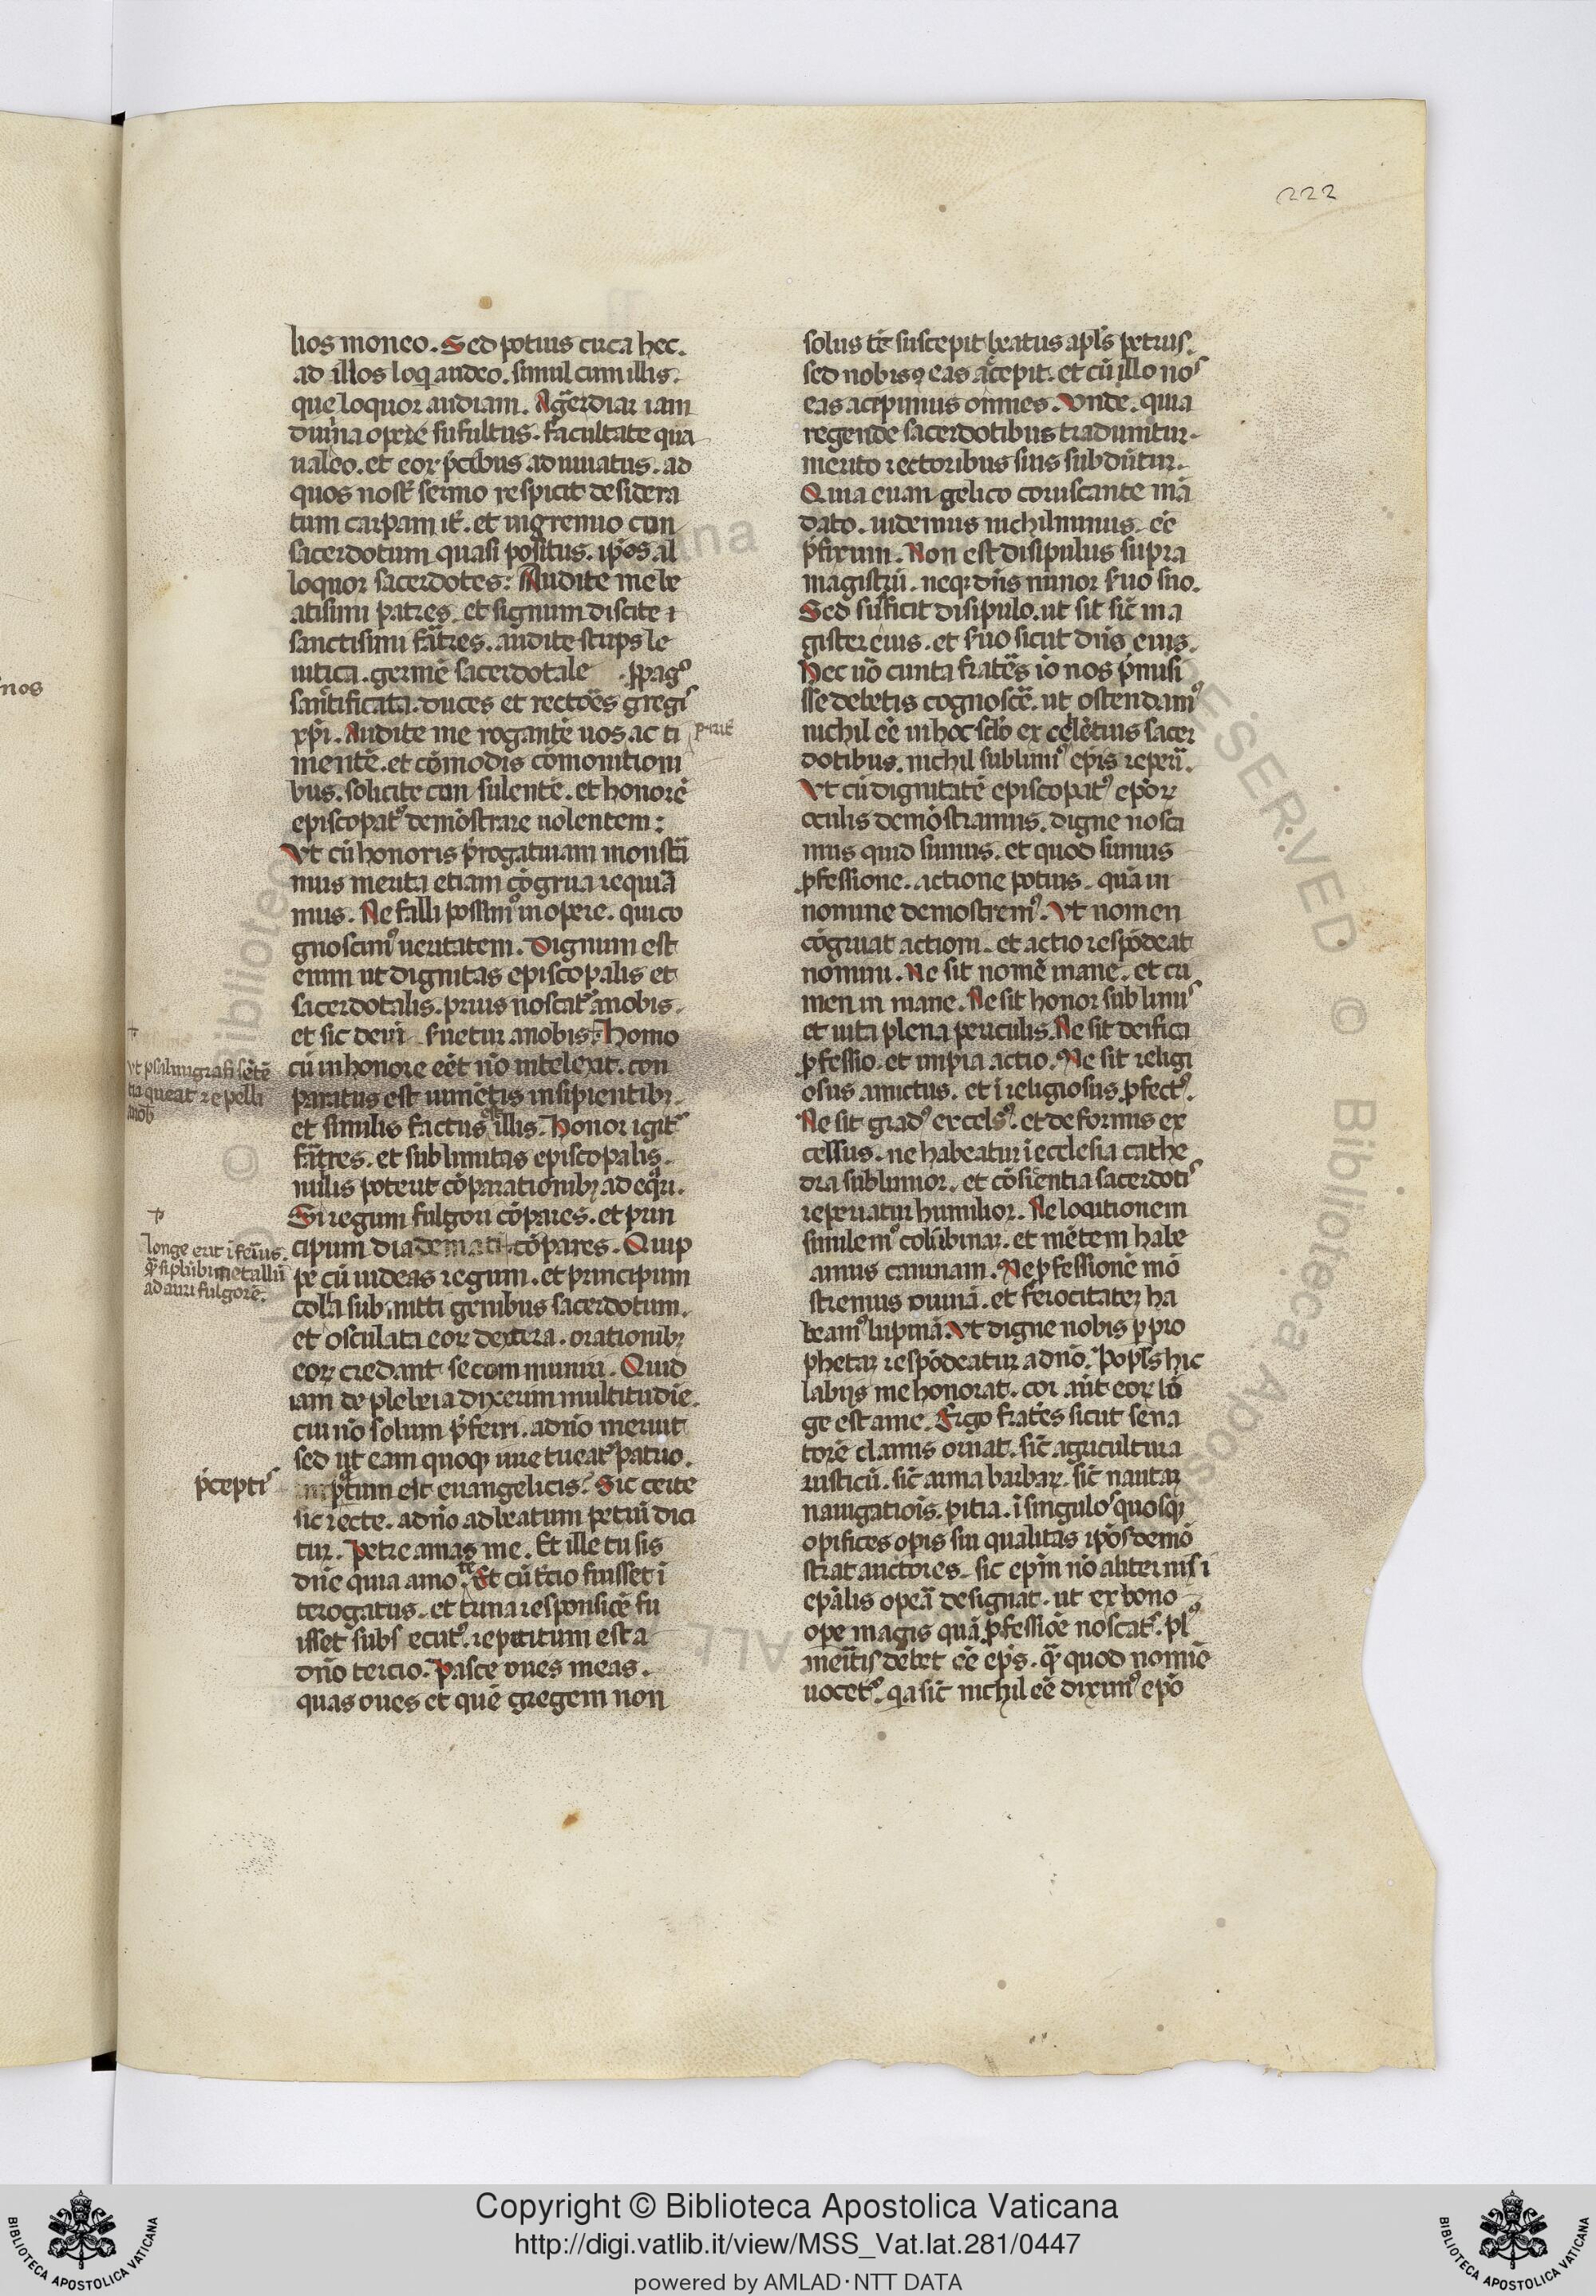 222
lios moneo. Sed potius circa hec.
ad illos loq̄ audeo. simul cum illis.
que loquor audiam. Ag̃rediar iam
diuina opere sufultus. facultate qua
ualeo. et eoꝝ p̃cibus adiuuatus. ad
quos nost̃ sermo respicit desidera
tum carpam it̃. et in gremio con
sacerdotum quasi positus. ip̃os al
loquor sacerdotes: Audite me be
atisimi patres. et
sanctisimi fr̃atres. audite stirps le
uitica. germẽ sacerdotale . ꝓpagꝰ
santificata. duces et rectões gregis
xp̃i. Audite me rogantẽ uos. ac ti
mentẽ. et cõmodis cõmonitioni
bus. solicite con sulentẽ. et honorẽ
episcopatꝰ demõstrare uolentem:
Vt cũ honoris p̃rogatiuam monst̃a
mus merita etiam cõgrua requiã
mus. Ne falli possimꝰ in opere. qui co
gnoscimꝰ ueritatem. Dignum est
enim ut dignitas episcopalis et
sacerdotalis. prius noscatᷣ a nobis.
et sic dein̄ suetur a nobis. Homo
cũ in honore eẽt nõ intelexit. con
paratus est iumẽtis insipientibꝫ.
et similis factus est illis. Honor igitᷣ
fr̃atres. et sublimitas episcopalis.
nulis poterit cõparationibꝫ adeq̃ri.
Si regum fulgori cõpares. et prin
cipum diademati cõpares. Quip
pe cũ uideas regum. et principum
cola submitti genibus sacerdotum.
et osculata eoꝝ dextera. orationibꝫ
eoꝝ credant se com muniri. Quid
iam de plebeia dixerim multitudĩe.
cui nõ solum p̃ferri. a dño meruit
sed ut eam quoqꝫ iure tueatᷣ patrio.
p̃tum est euangelicis. Sic certe
sic recte. a dño ad beatum petrũ dici
tur. Petre amas me. Et ille tu sis
dñe quia amo te. Et cũ t̃cio fuisset ĩ
terogatus. et trina responsiõe fu
isset subs ecutꝰ. repititum est a
dño tercio. Pasce oues meas.
quas oues et quẽ gregem non
p̃cepti
longe erit ĩferius.
q̃ si plũbi metallũ
ad auri fulgorẽ.
tia queat repelli
solus tẽ suscepit beatus apl̃s petrus.
sed nobisꝯ eas acepit. et cũ illo nos
eas acepimus omnes. Vnde. quia
regende sacerdotibus traduntur.
merito rectoribus suis subdũtur.
Quia euan gelico coruscante mã
dato. uidemus nichilminus. eẽ
p̃fixum. Non est disipulus supra
magistrũ. neqꝫ dñs minor s̃uo suo.
Sed sufficit disipulo. ut sit sic̃ ma
gister eius. et s̃uo sicut dñs eius.
Hec uõ cunta fratẽs iõ nos p̃misi
sse debetis cognoscẽ. ut ostendamꝰ
nichil eẽ in hoc sclõ excelẽtius sacer
dotibus. nichil sublimiꝰ ep̃is reperĩ.
Vt cũ dignitatẽ episcopatꝰ epõꝝ
oculis demõstramus. digne nosca
mus quid sumus. et quod sumus
ꝓfessione. actione potius. quã in
nomine demostremꝰ. Vt nomen
cõgruat actioni. et actio respõdeat
nomini. Ne sit nomẽ inane. et cri
men in mane. Ne sit honor sublimis
et uita plena periculis. Ne sit deifica
ꝓfessio. et impia actio. Ne sit religi
osus amictus. et ĩreligiosus ꝓfectꝰ.
Ne sit gradꝰ excelsꝰ. et deformis ex
cessus. ne habeatur ĩ ecclesia cathe
dra sublimior. et cõsientia sacerdotis
reperiatur humilior. Ne locutionem
similemꝰ colũbinaꝫ. et mẽtem habe
amus caninam. Ne ꝓfessionẽ mõ
stremus ouinã. et ferocitateꝫ ha
beamꝰ lupinã. Vt digne nobis ꝑ pro
phetaꝫ respõdeatur a dño. Popl̃s hic
labijs me honorat. cor aũt eoꝝ lõ
ge est a me. Ergo frat̃es sicut sena
torẽ clamis ornat. sic̃ agricultura
rusticũ. sic̃ arma barbaꝝ. sic̃ nautaꝝ
nauigatiõis. pitia. ĩ singulos quosqꝫ
opifices op̃is sui qualitas ip̃os demõ
strat auctores. sic ep̃m nõ aliter nisi
epãlis opeã designat. ut ex bono
ope magis quã ꝓfessiõe noscatᷣ. plꝰ
meĩtis debet eẽ ep̃s. q̃ quod nomĩe
uocetᷣ. qa sic̃ nichil eẽ diximꝰ ep̃o
nos
Copyright © Biblioteca Apostolica Vaticana
http://digi.vatlib.it/view/MSS_Vat.lat.281/0447
powered by AMLAD·NTT DATA
BIBLIOTECA APOSTOLICA VATICANA
BIBLIOTECA APOSTOLICA VATICANA